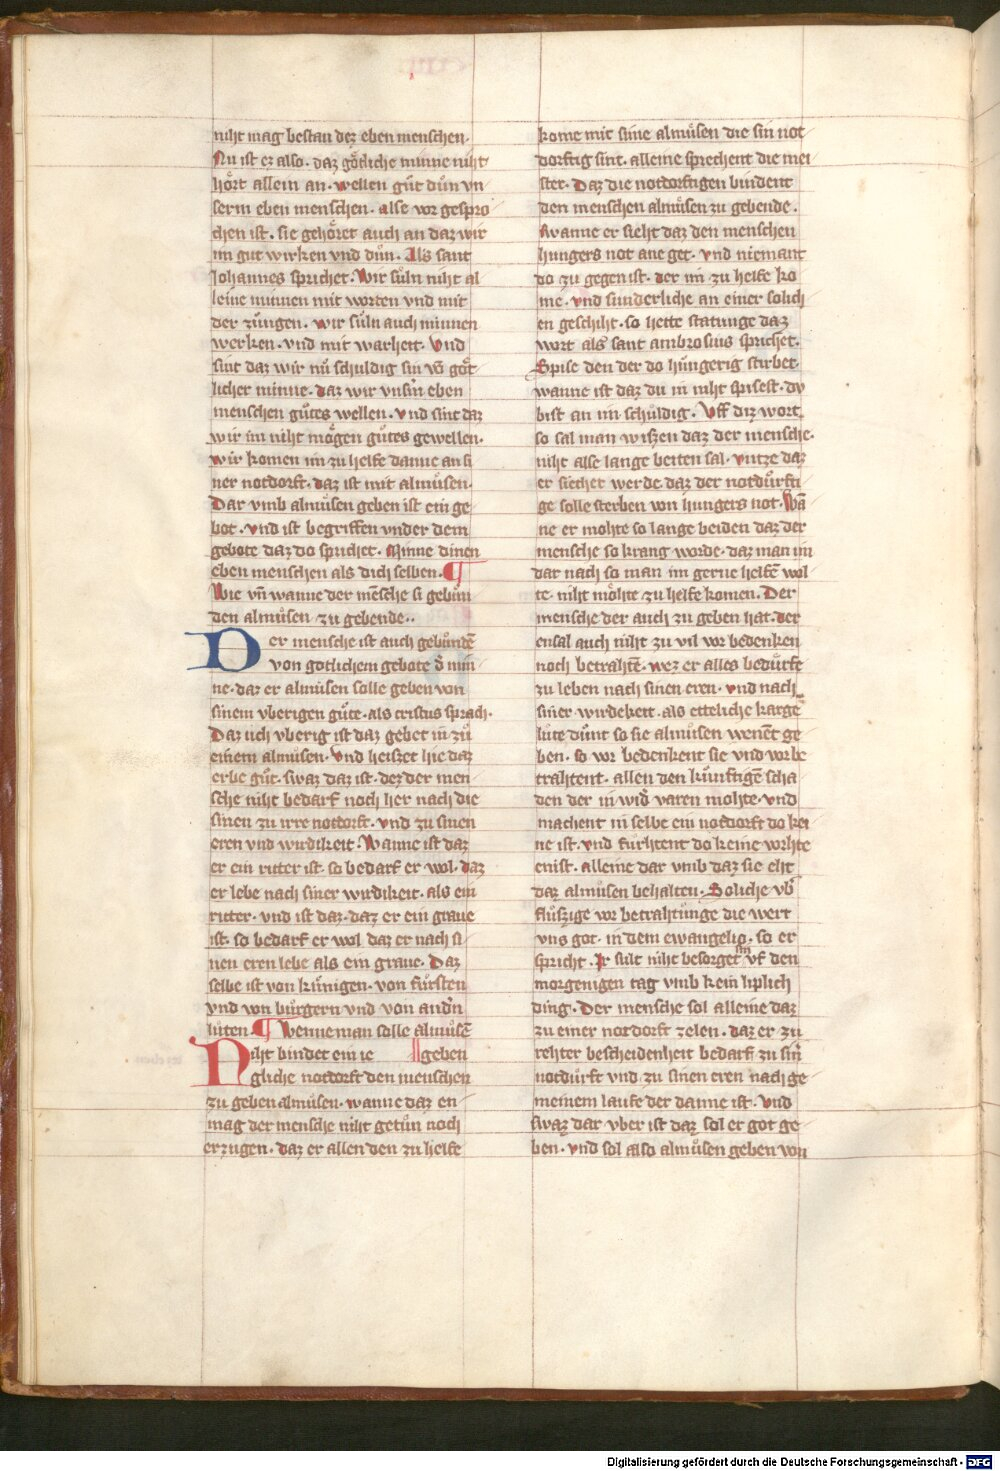 niht mag bestan dez eben menschen.
Nu ist ez also. daz goͤtliche minne niht
hoͤrt allein an. wellen guͤt duͦn vn
serm eben menschen. alse vor gespro
chen ist. sie gehoͤret auch an daz wir
im gut wirken vnd duͦn. Als sant
Johannes sprichet. Wir suͤln niht al
leine minnen mit worten vnd mit
der zuͤngen. wir suͤln auch minnen
werken. vnd mit warheit. Vnd
sint daz wir nuͦ schuldig sin vō goͤt
licher minne. daz wir vnsm̄ eben
menschen guͤtes wellen. vnd sint daz
wir im niht moͤgen guͤtes gewellen.
wir komen im zu helfe danne an si
ner notdorft. daz ist mit almuͦsen.
Dar vmb almuͦsen geben ist ein ge
bot. vnd ist begriffen vnder dem
gebote daz do sprichet. Minne dinen
eben menschen als dich selben. ¶
Wie vn̄ wanne der mēsche si gebūn
den almuͦsen zu gebende..
Der mensche ist auch gebundē
von gotlichem gebote d̄ min
ne. daz er almuͦsen solle geben von
sinem vberigen guͤte. als cristus sprach.
Daz uch vberig ist daz gebet in zuͦ
einem almuͦsen. Vnd heiszet hie daz
erbe guͤt. swaz daz ist. dez der men
sche niht bedarf noch her nach die
sinen zu irre notdorft. vnd zu sinen
eren vnd wirdikeit. Wanne ist daz
er ein ritter ist. so bedarf er wol. daz
er lebe nach siner wirdikeit. als ein
ritter. vnd ist daz. daz er ein graue
ist. so bedarf er wol daz er nach si
nen eren lebe als ein graue. Daz
selbe ist von kuͤnigen. von fuͤrsten
vnd von buͤrgern vnd von andn̄
luͤten. ¶ Wenne man solle almuͦsē
geben
Niht bindet ein ie
gliche notdorft den menschen
zu geben almuͦsen. wanne daz en
mag der mensche niht getuͦn noch
erzugen. daz er allen den zu helfe
kome mit sime almuͦsen die sin not
dorftig sint. alleine sprechent die mei
ster. Daz die notdorftigen bindent
den menschen almuͦsen zu gebende.
Swanne er sieht daz den menschen
hungers not ane get. vnd niemant
do zu gegen ist. der im zu helfe ko
me. vnd sunderliche an einer solich
en geschiht. so hette statunge daz
wort als sant ambrosius sprichet.
Spise den der do huͤngerig stirbet
wanne ist daz du in niht spisest. du
bist an im schuͤldig. Vff diz wort
so sal man wiszen daz der mensche.
niht alse lange beiten sal. vntze daz
er siechet werde daz der notduͤrfti
ge solle sterben von hungers not. Wā
ne er mohte so lange beiden daz der
mensche so krang worde. daz man im
dar nach so man im gerne helfē wol
te. niht moͤhte zu helfe komen. Der
mensche der auch zu geben hat. der
ensal auch niht zu vil vor bedenken
noch betrahtē. wez er alles beduͤrfe
zu leben nach sinen eren. vnd nach
siner wirdekeit. als etteliche karge
luͤte duͦnt so sie almuͦsen wenēt ge
ben. so vor bedenkent sie vnd vorbe
trahtent. allen den kuͤnftigē scha
den der in wid̄ varen mohte. vnd
machent in selbe ein notdorft do kei
ne ist. vnd furhtent do keine vorhte
enist. alleine dar vmb daz sie eht
daz almuͦsen behalten. Soliche vb̄
fluͤszige vor betrahtuͤnge die wert
vns got. in dem ewangelio. so er
spricht. Ir sult niht besorget sin vf den
morgenigen tag vmb kein liplich
ding. Der mensche sol alleine daz
zu einer notdorft zelen. daz er zu
rehter bescheidenheit bedarf zu sin̄
notduͤrft vnd zu sinen eren nach ge
meinem laufe der danne ist. Vnd
swaz dar vber ist daz sol er got ge
ben. vnd sol also almuͦsen geben von
Digitalisierung gefördert durch die Deutsche Forschungsgemeinschaft - DFG